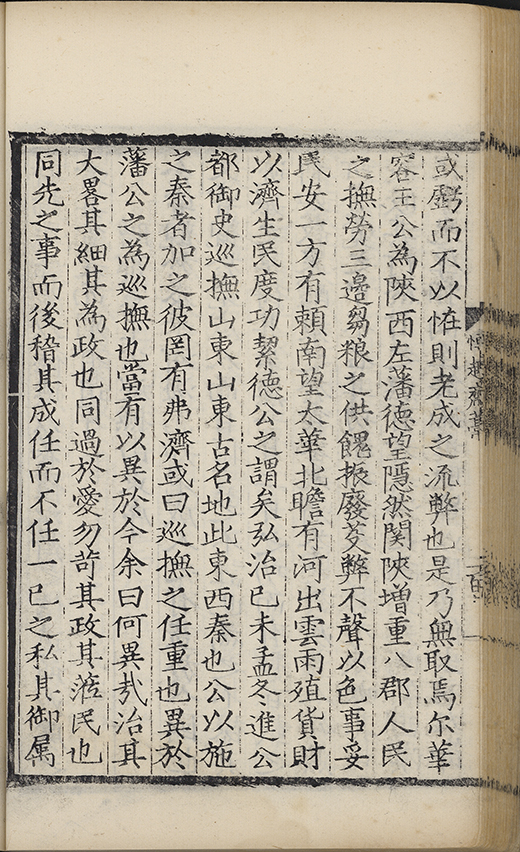 或虧而不以恠則老成之流弊也是乃無取焉尔華
容王公為陝西左藩德望隱然関陝增重八郡人民
之撫勞三邊芻粮之供餽振廢芟弊不聲以色事妥
民安一方有頼南望太華北瞻有河出雲雨殖貨財
以濟生民度功絜德公之謂矣弘治己未孟冬進公
都御史巡撫山東山東古名地此東西秦也公以施
之秦者加之彼罔有弗濟或曰巡撫之任重也異於
藩公之為巡撫也當有以異於今余曰何異㢤治其
大畧其細其為政也同過於愛勿苛其政其蒞民也
同先之事而後稽其成任而不任一己之私其御属